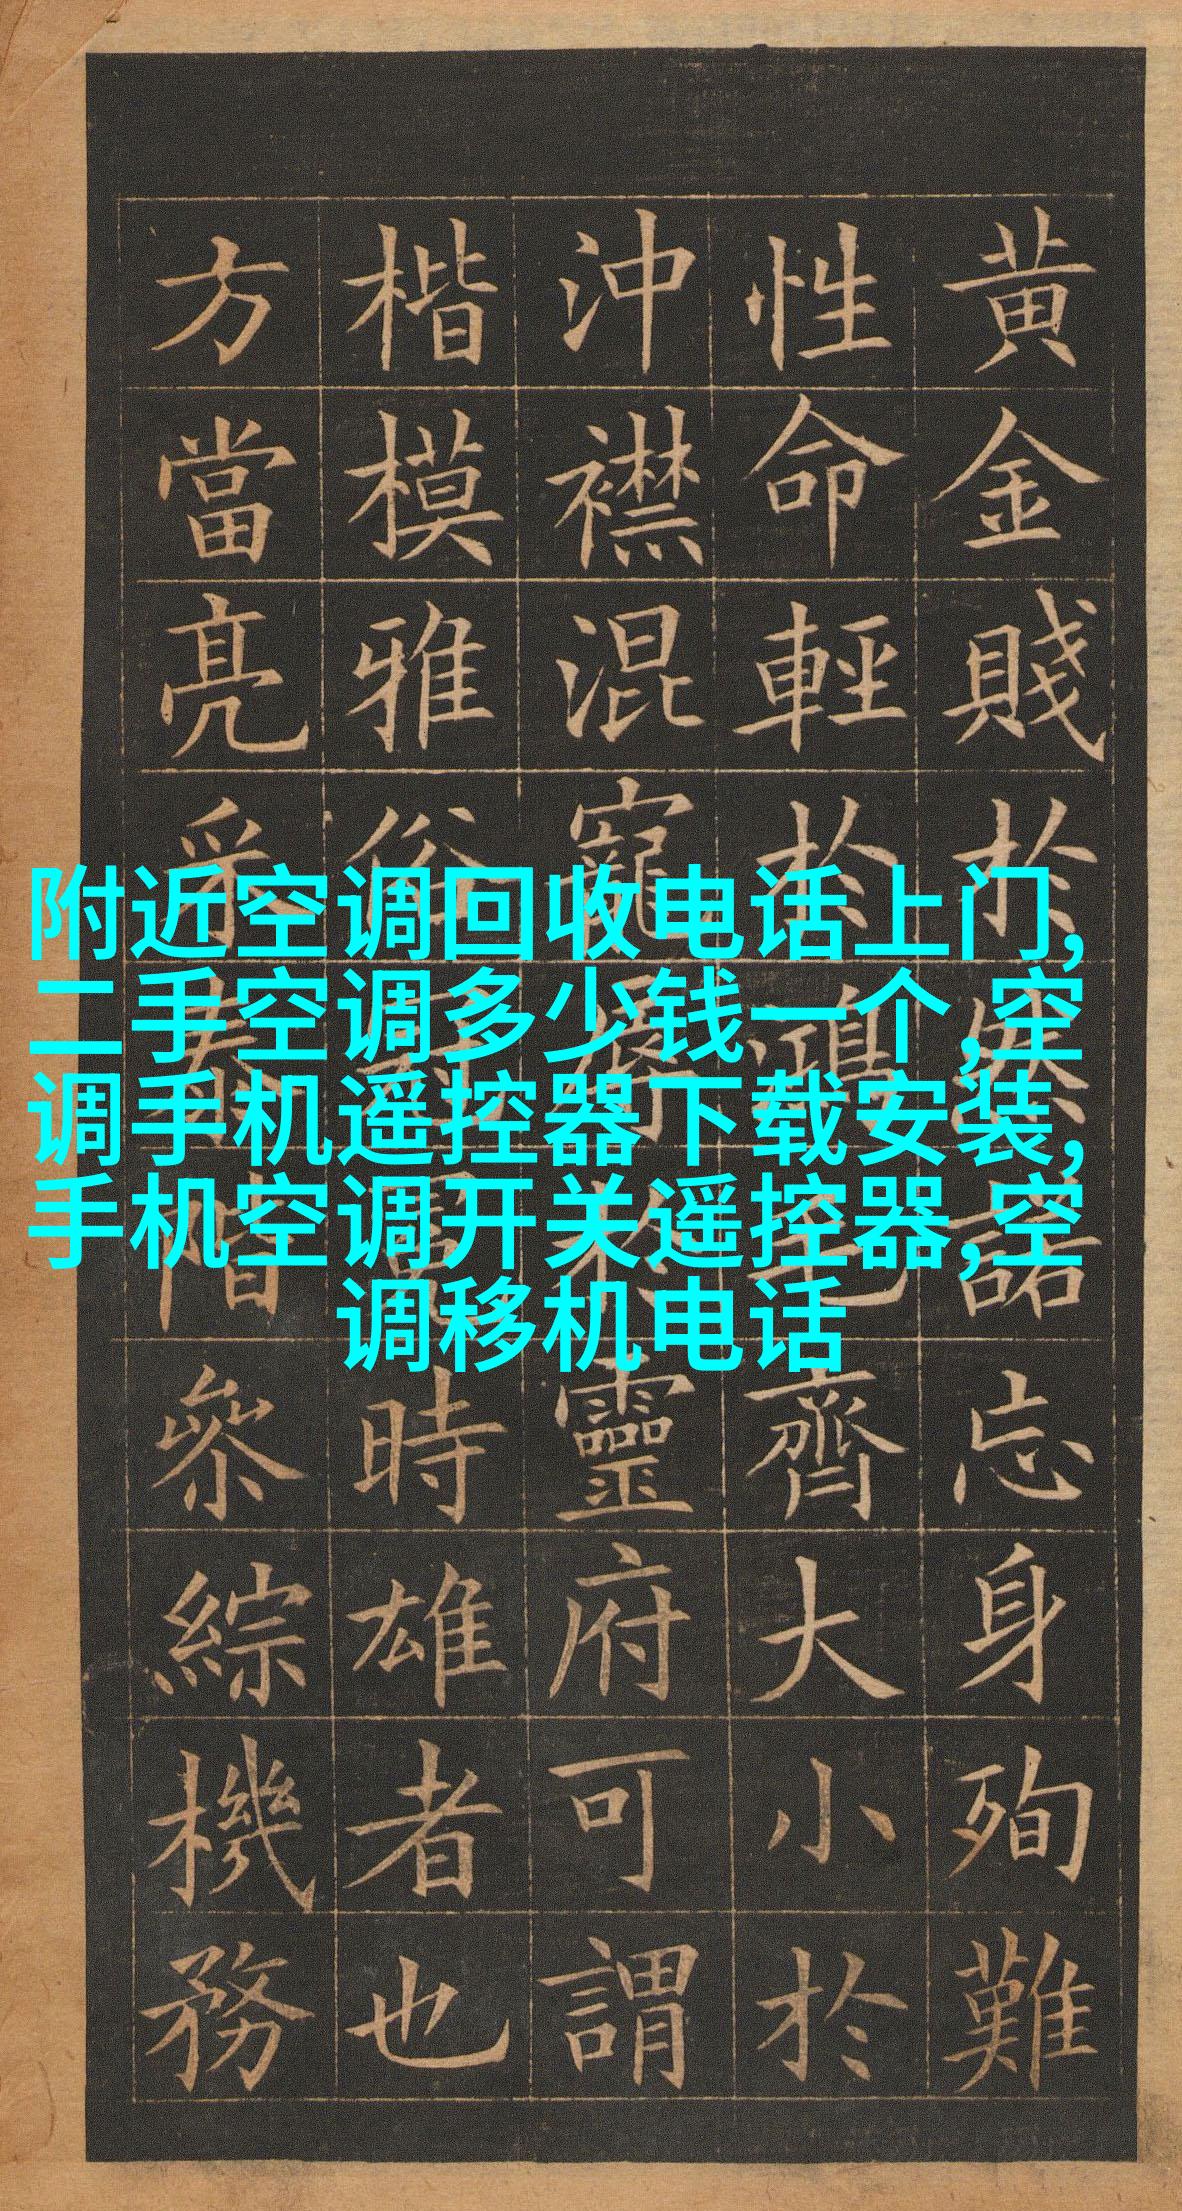 附近空调回收电话上门,
二手空调多少钱一个,空
调手机遥控器下载安装,
手机空调开关遥控器,空
调移机电话
黄金賤於諾忘身殉難
性命輕於鴻毛齊大小於
沖襟混寵辱於靈府可謂
楷模雅俗時雄者也
方當亮采階參綜機務